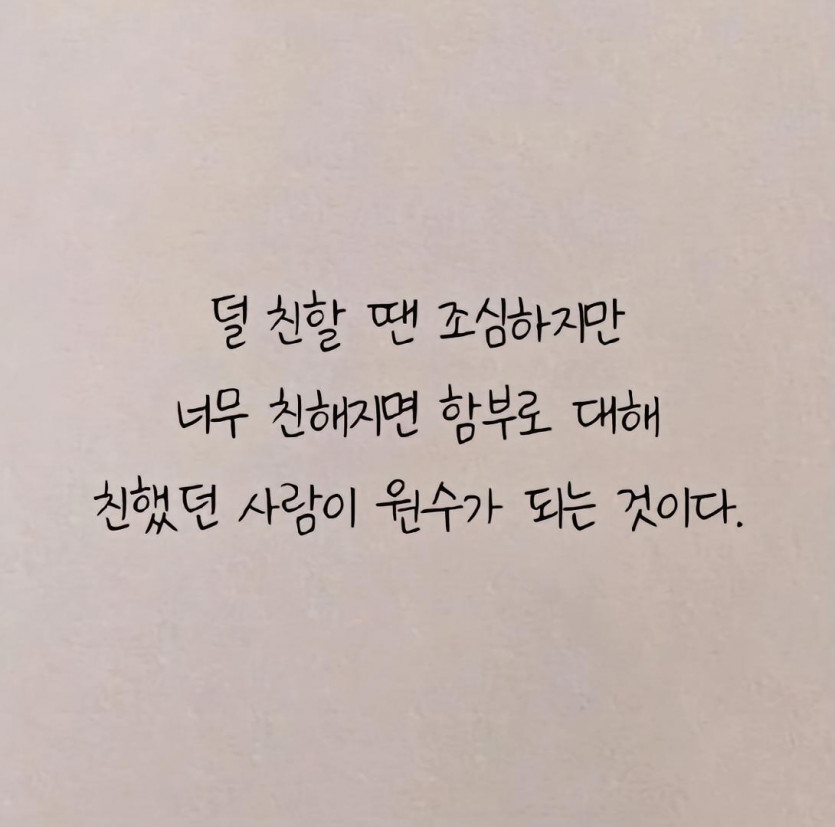 덜 친할 땐 조심하지만
너무 친해지면 함부로 대해
친했던 사람이 원수가 되는 것이다.